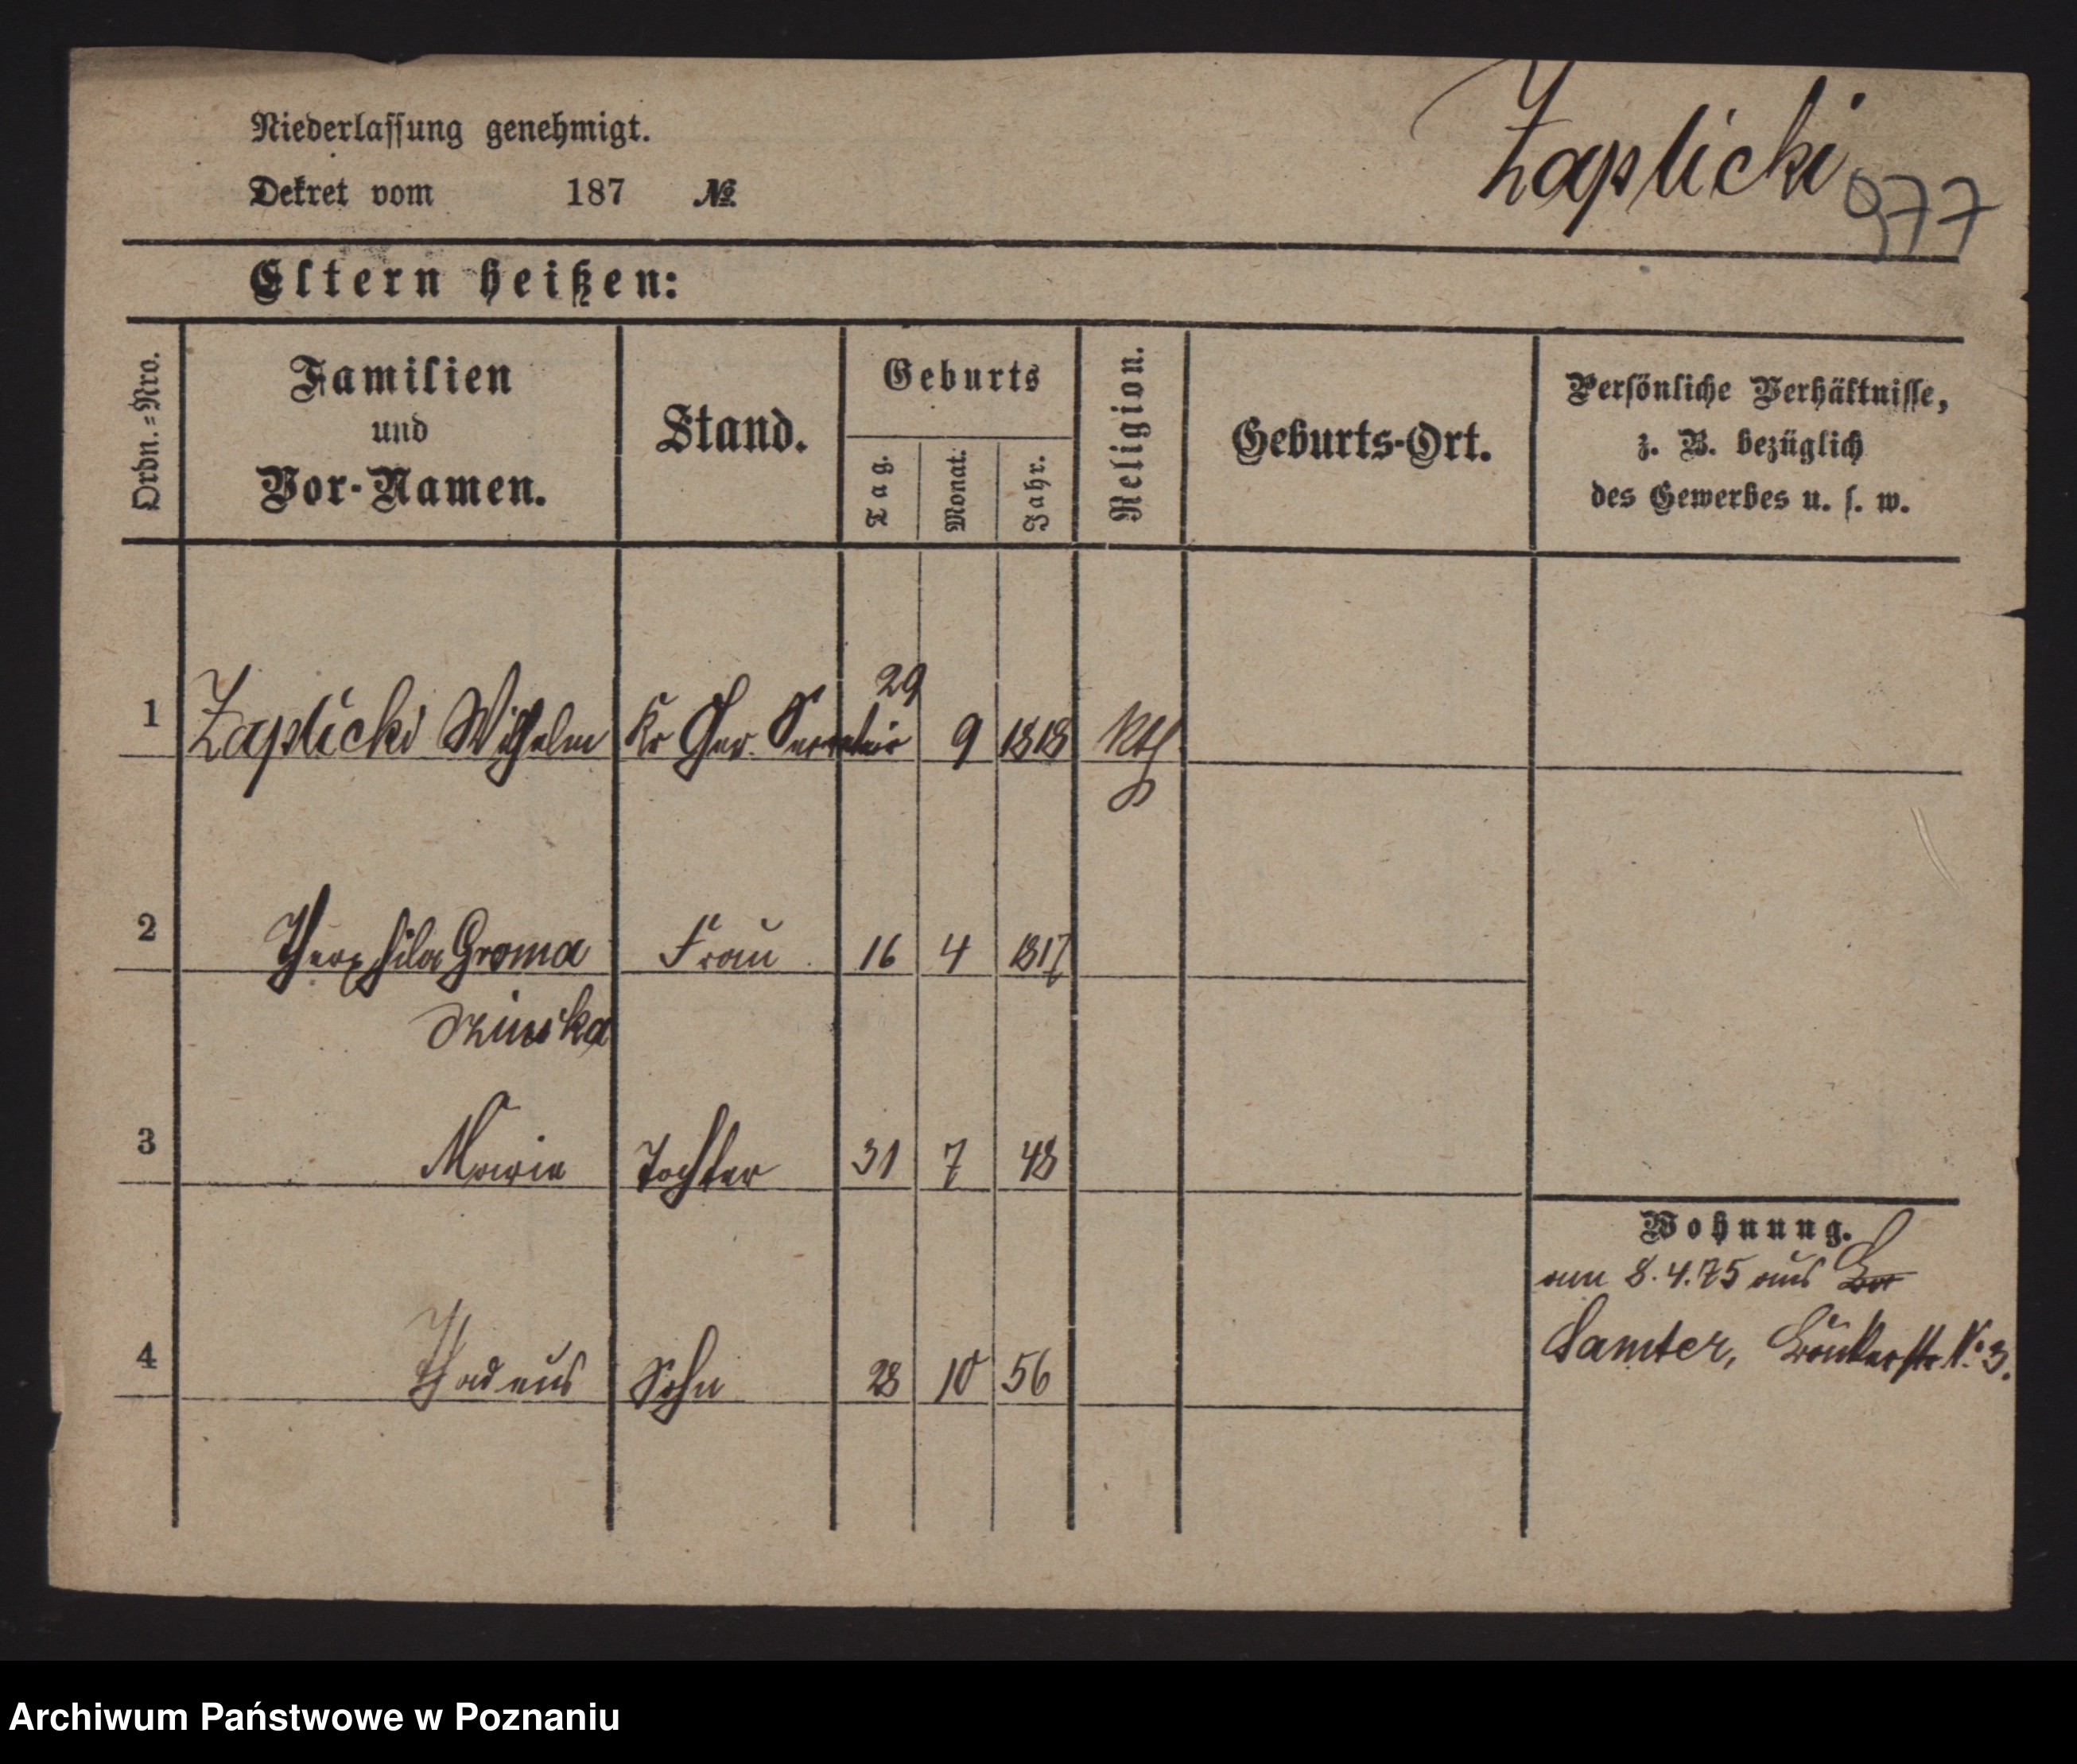 Niederlassung genehmigt.
Dekret vom 187 №
Zaplicki
977
Eltern heißen:
Ordn.=Nro.
Familien
und
Vor-Namen.
Stand.
Geburts
Tag.
Monat.
Jahr.
Religion.
Geburts-Ort.
Persönliche Verhältnisse,
z. B. bezüglich
des Gewerbes u. s. w.
1 Zaplicki Wilhelm Kr Ger. Secretair 29 9 1818 Kth
2 Theophila Groma Frau 16 4 1817
dzinska
3 Marie Tochter 31 7 48
4 Thadeus Sohn 28 10 56
Wohnung.
am 8.4.75 aus
Samter, No 3.
Archiwum Państwowe w Poznaniu